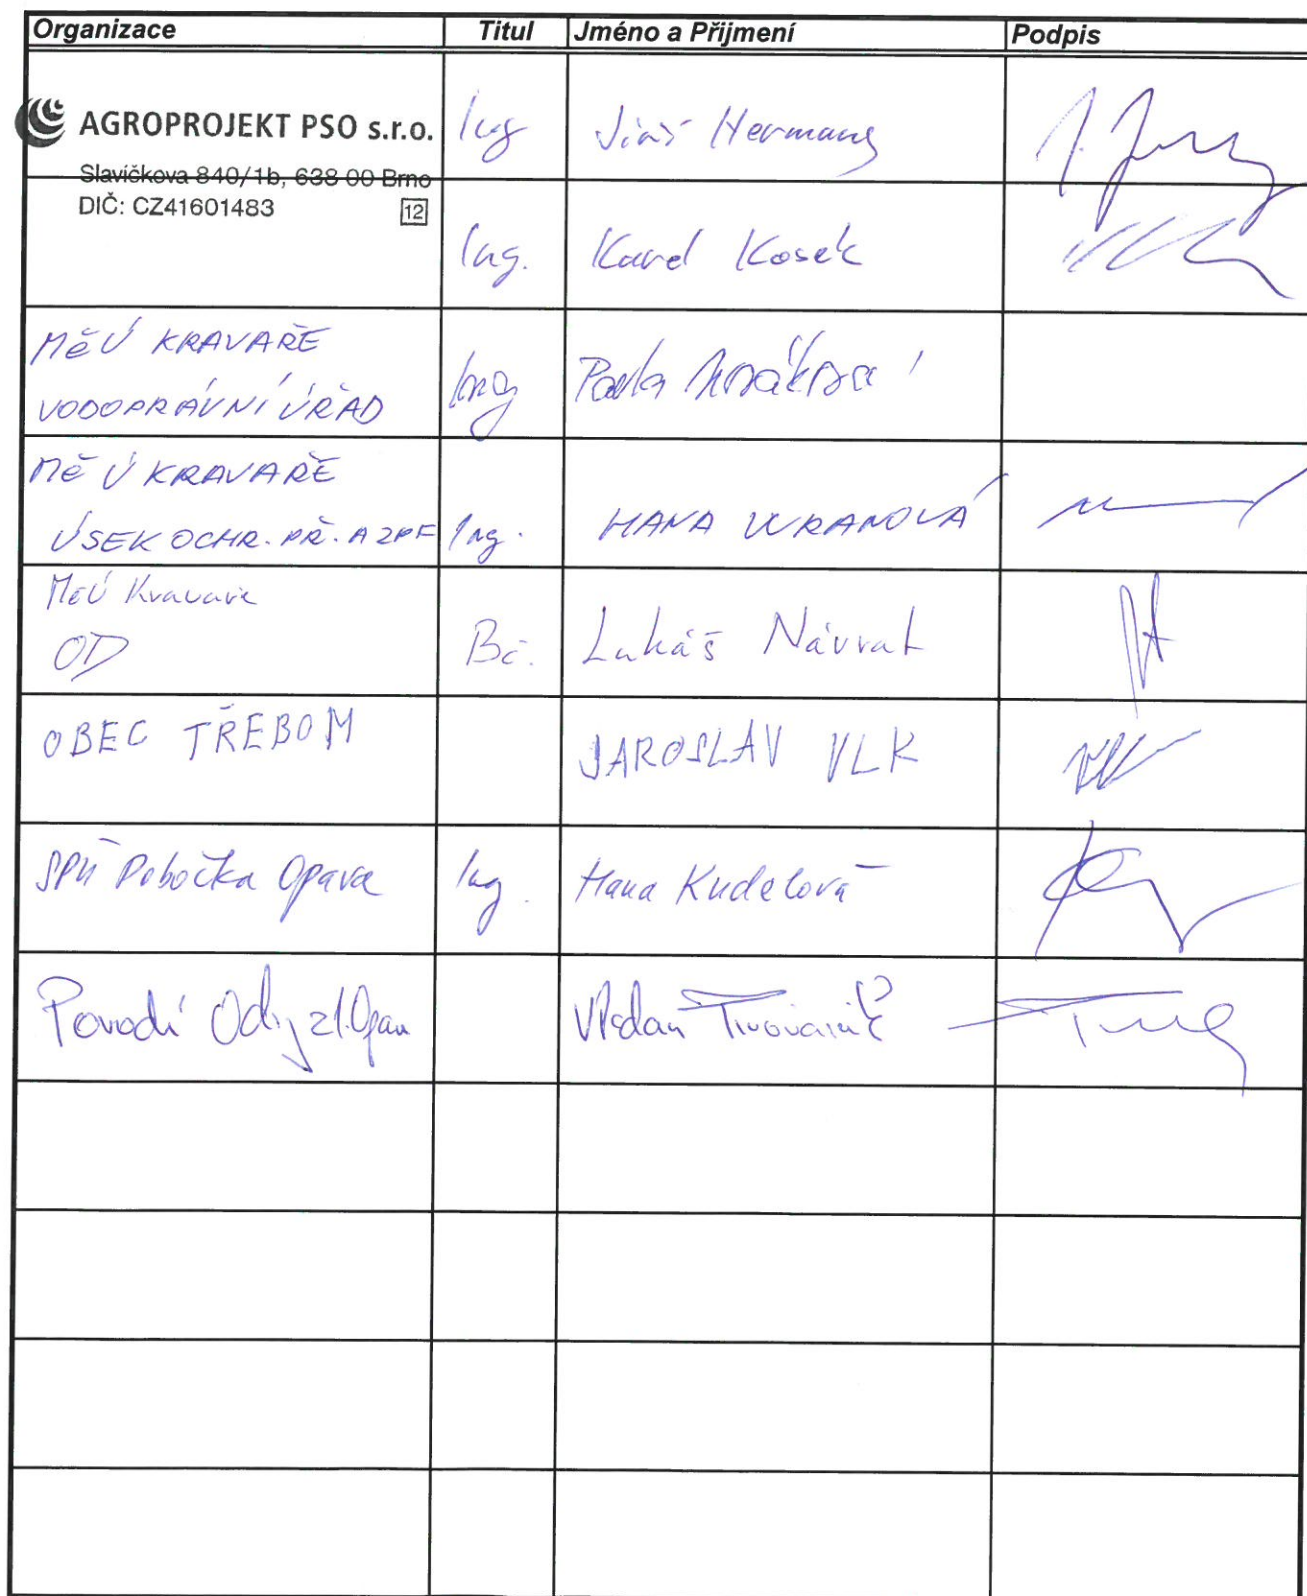 Organizace Titul Jméno a Přijmení Podpis
AGROPROJEKT PSO s.r.o. Ing Jiří Hermany
Slavíčkova 840/1b, 638 00 Brno
DIČ: CZ41601483 12
Ing. Karel Kosek
MěÚ KRAVAŘE
VODOPRÁVNÍ ÚŘAD Ing Pavla
MěÚ KRAVAŘE
ÚSEK OCHR. PŘ. A ZPF Ing. HANA VÚRANOVÁ
MěÚ Kravaře
OD Bc. Lukáš Návrat
OBEC TŘEBOM JAROSLAV VLK
SPÚ Pobočka Opava Ing. Hana Kudelová
Povodí Odry